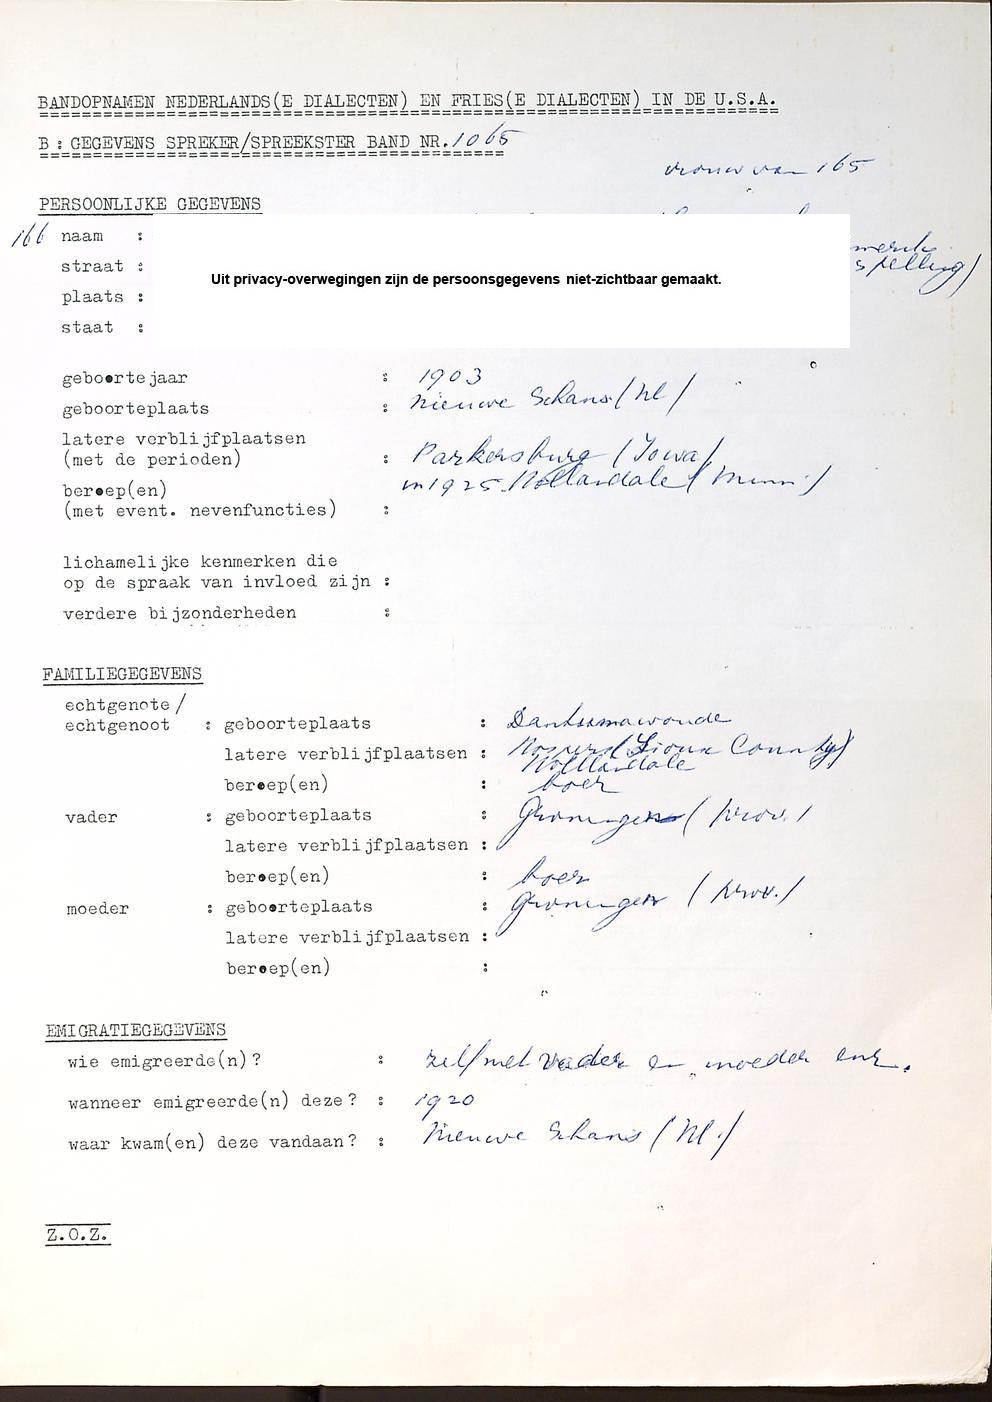 BANDOPNAMEN NEDERLANDS(E DIALECTEN) EN FRIES(E DIALECTEN) IN DE U.S.A.
B : GEGEVENS SPREKER/SPREEKSTER BAND NR. 1065
vrouw van 165
PERSOONLIJKE GEGEVENS
166 naam :
straat : spelling)
Uit privacy-overwegingen zijn de persoonsgegevens niet-zichtbaar gemaakt.
plaats :
staat :
geboortejaar : 1903
geboorteplaats : Nieuwe Schans (Nl)
latere verblijfplaatsen
(met de perioden) : Parkersburg (Iowa)
in 1925 Hollandale (Minn.)
beroep(en)
(met event. nevenfuncties) :
lichamelijke kenmerken die
op de spraak van invloed zijn :
verdere bijzonderheden :
FAMILIEGEGEVENS
echtgenote/
echtgenoot : geboorteplaats : Dantumawoude
latere verblijfplaatsen : (Sioux County)
Hollandale
beroep(en) : boer
vader : geboorteplaats : Groningen (prov.)
latere verblijfplaatsen :
beroep(en) : boer
moeder : geboorteplaats : Groningen (prov.)
latere verblijfplaatsen :
beroep(en) :
EMIGRATIEGEGEVENS
wie emigreerde(n)? : zelf met vader en moeder enz.
wanneer emigreerde(n) deze? : 1920
waar kwam(en) deze vandaan? : Nieuwe Schans (Nl.)
Z.O.Z.